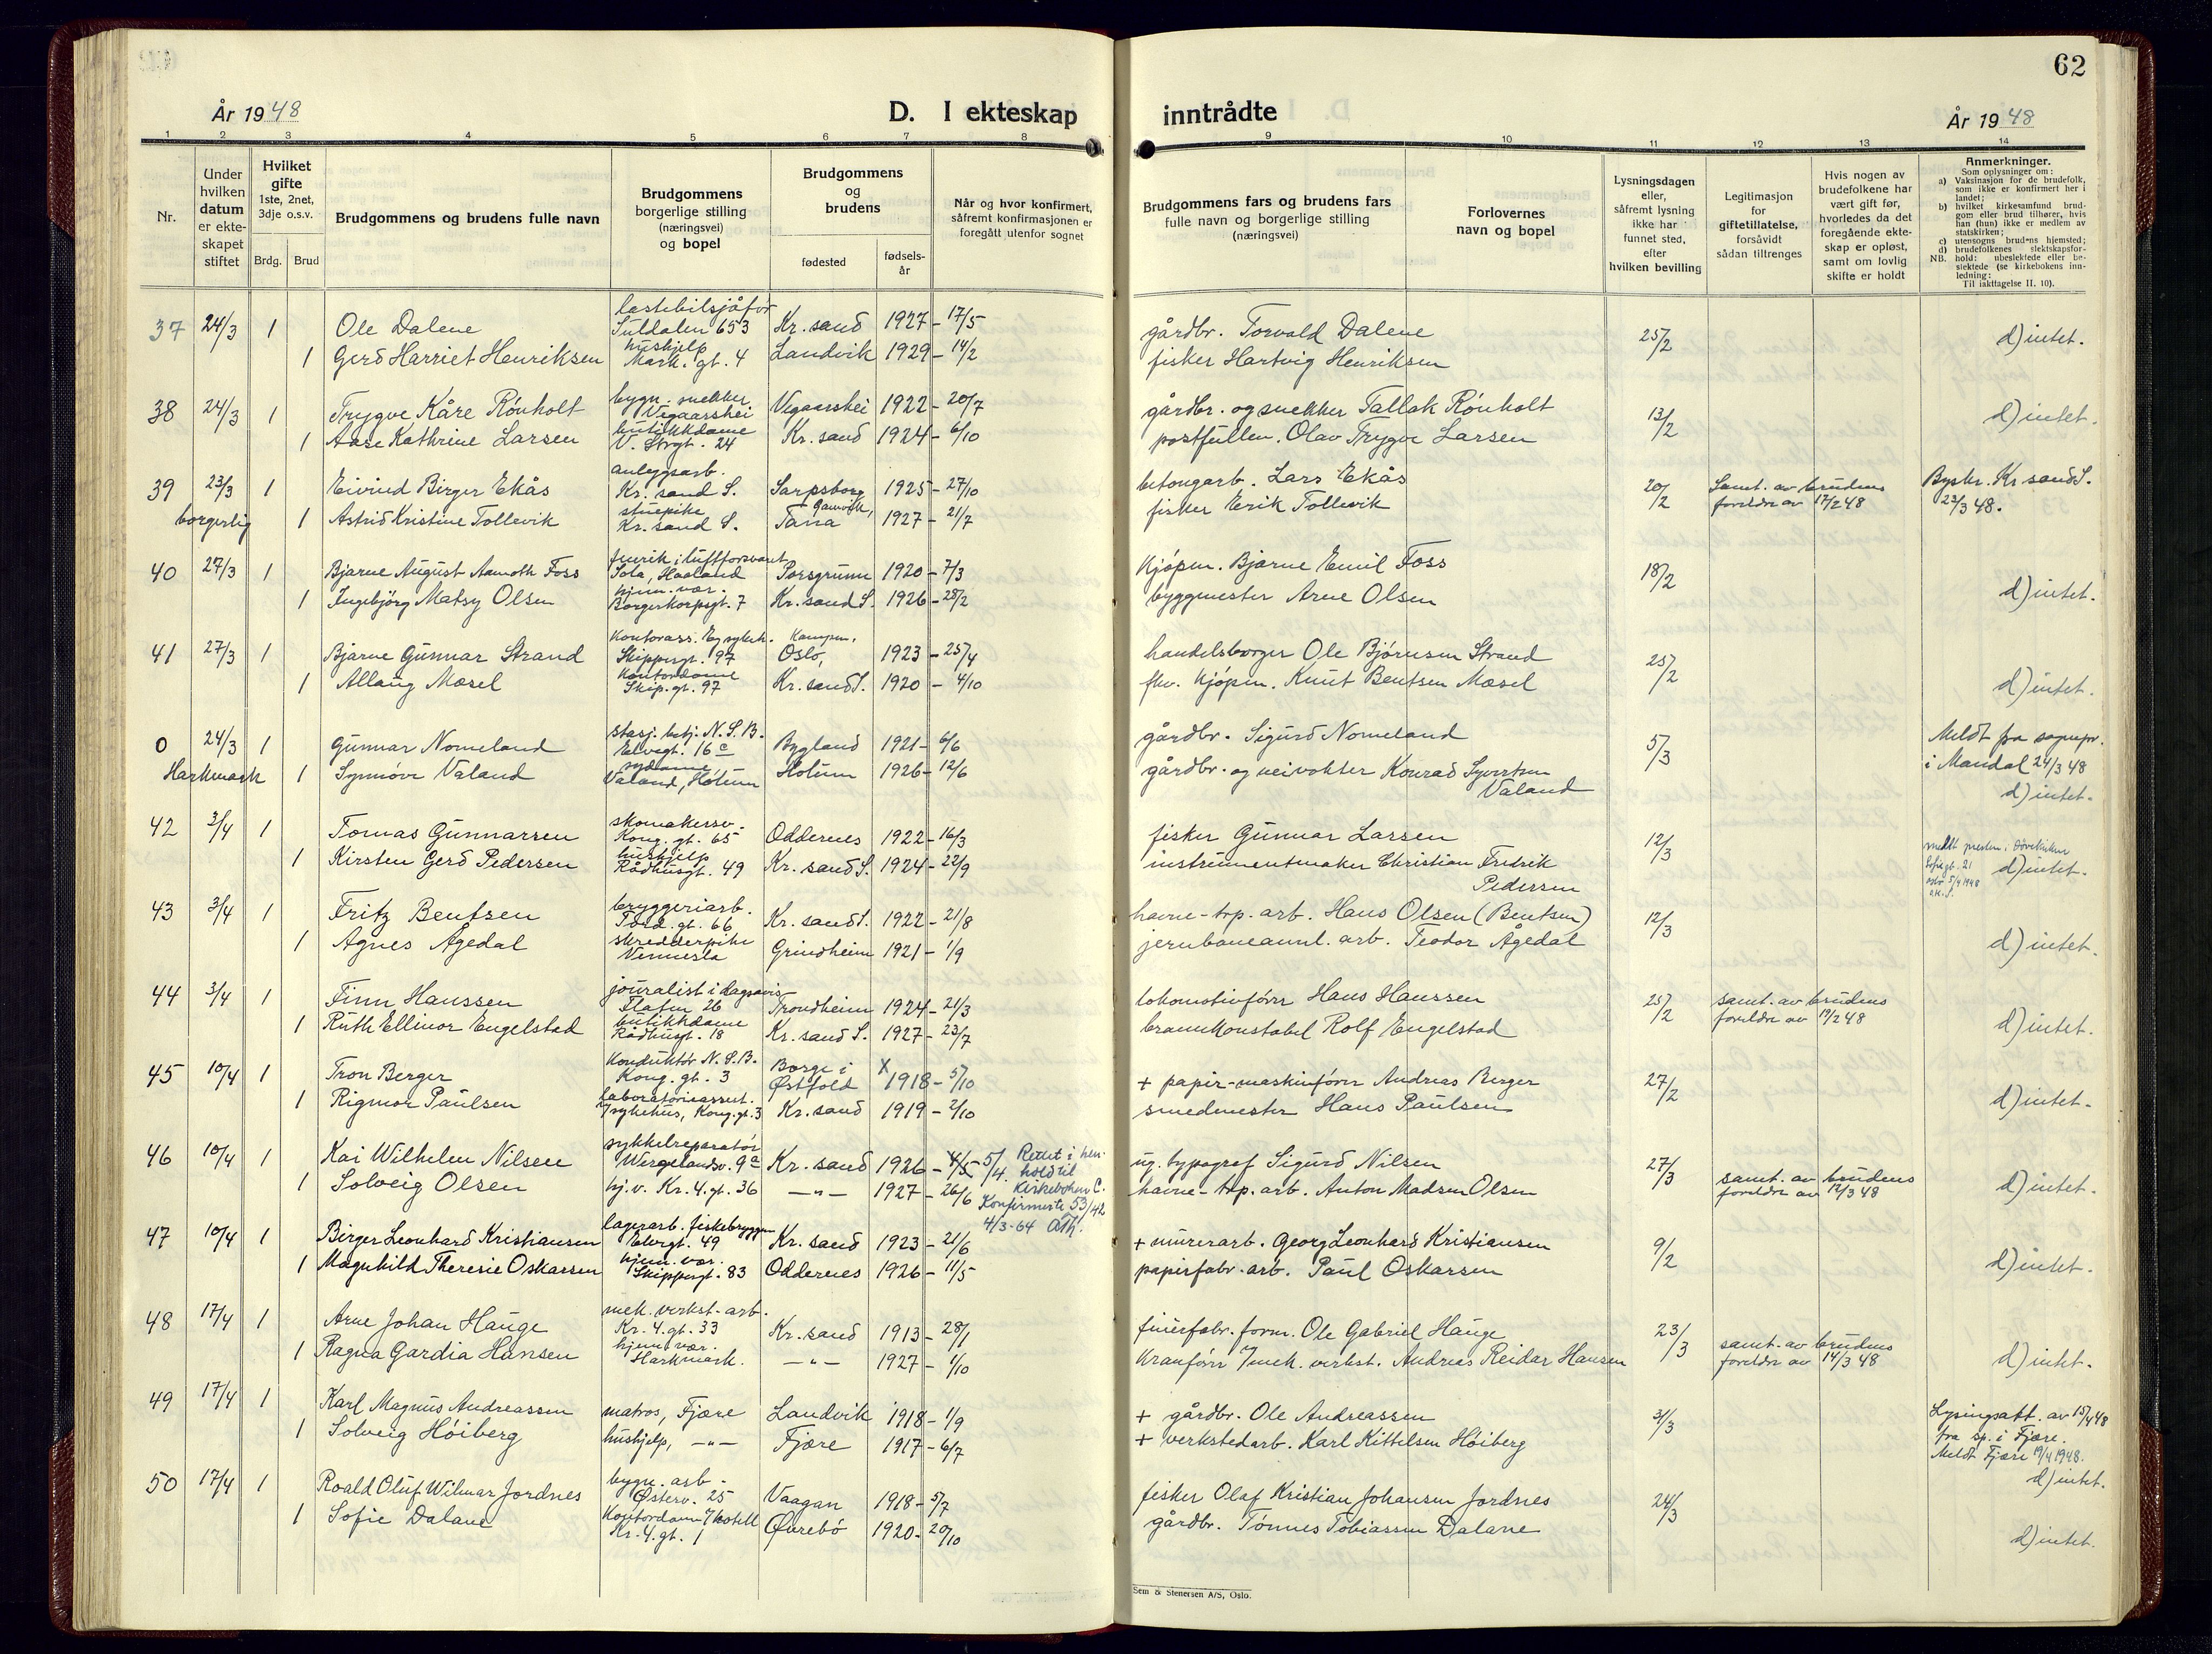 62
År 1948
D. I ekteskap
inntrådte
År 1948
1 2 3 4 5 6 7 8 9 10 11 12 13 14
Nr.
Under hvilken datum er ekteskapet stiftet
Hvilket gifte 1ste, 2net, 3dje o.s.v.
Brdg. Brud
Brudgommens og brudens fulle navn
Brudgommens borgerlige stilling (næringsvei) og bopel
Brudgommens og brudens
fødested
fødselsår
Når og hvor konfirmert, såfremt konfirmasjonen er foregått utenfor sognet
Brudgommens fars og brudens fars fulle navn og borgerlige stilling (næringsvei)
Forlovernes navn og bopel
Lysningsdagen eller, såfremt lysning ikke har funnet sted, efter hvilken bevilling
Legitimasjon for giftetillatelse, forsåvidt sådan tiltrenges
Hvis nogen av brudefolkene har vært gift før, hvorledes da det foregående ekteskap er opløst, samt om lovlig skifte er holdt
Anmerkninger.
Som oplysninger om:
a) Vaksinasjon for de brudefolk, som ikke er konfirmert her i landet;
b) hvilket kirkesamfund brudgom eller brud tilhører, hvis han (hun) ikke er medlem av statskirken;
c) utensogns brudens hjemsted;
d) brudefolkenes slektskapsforhold: ubeslektede eller beslektede (se kirkebokens innledning:
NB. Til iakttagelse II, 10).
37 24/3 1 Ole Dalene lastebilsjåfør Suldalen 653 Kr. sand 1927 - 17/5 gårdbr. Torvald Dalene 25/2 d) intet.
1 Gerd Harriet Henriksen hushjelp Mark. gt. 4 Landvik 1929 - 14/2 fisker Hartvig Henriksen
38 24/3 1 Trygve Kåre Rönholt bygn. snekker Vegaarshei Vegaarshei 1922 - 20/7 gårdbr. og snekker Tallak Rönholt 13/2 d) intet.
1 Aase Kathrine Larsen butikkdame V. Strgt. 24 Kr. sand 1924 - 6/10 postfullm. Olav Trygve Larsen
39 23/3 1 Eivind Birger Ekås anleggsarb. Kr. sand S. Sarpsborg 1925 - 27/10 betongarb. Lars Ekås 20/2 Samt. av brudens foreldre av 17/2 48 Byskr. Kr sand S. 23/3 48.
borgerlig 1 Astrid Kristine Tollevik stuepike Kr. sand S. Gamvik, Tana 1927 - 21/7 fisker Erik Tollevik
40 27/3 1 Bjarne August Aamoth Foss fenrik i luftforsvaret Sola, Haaland Porsgrunn 1920 - 7/3 kjöpm. Bjarne Emil Foss 18/2
1 Ingebjörg Matsy Olsen hjem. vær. Borgerkorpsgt. 7 Kr. sand S. 1926 - 25/2 byggmester Arne Olsen d) intet.
41 27/3 1 Bjarne Gunnar Strand kontorass. Eg sykeh. Skippergt. 97 Kampen, Oslo, 1923 - 25/4 handelsborger Ole Bjørnsen Strand 25/2
1 Allaug Mæsel kontordame Skip. gt. 97 Kr. sand S. 1920 - 4/10 fhv. kjöpm. Knut Bentsen Mæsel d) intet.
0 24/3 1 Gunnar Nomeland stasj. betj. N.S.B. Elvegt. 16 c Bygland 1921 - 6/6 gårdbr. Sigurd Nomeland 5/3 Meldt fra sognepr. i Mandal 24/3 48
Harkmark 1 Synnöve Valand sydame Valand, Holum Holum 1926 - 12/6 gårdbr. og veivokter Konrad Syvertsen Valand d) intet.
42 3/4 1 Tomas Gunnarsen skomakersv. Kong. gt. 65 Oddernes 1922 - 16/3 fisker Gunnar Larsen 12/3 meldt presten i Dövekirken Sofiegt. 21 Oslo 5/4 1948
1 Kirsten Gerd Pedersen hushjelp Rådhusgt. 49 Kr. sand S. 1924 - 22/9 instrumentmaker Christian Fredrik Pedersen d) intet.
43 3/4 1 Fritz Bentsen bryggeriarb. Tord. gt. 66 Kr. sand S. 1922 - 21/8 havne-trp. arb. Hans Olsen (Bentsen) 12/3
1 Agnes Ågedal skredderpike Vennesla Grindheim 1921 - 1/9 jernbaneanl. arb. Teodor Ågedal d) intet.
44 3/4 1 Finn Hanssen journalist i dagsavis Flaten 26 Trondheim 1924 - 21/3 lokomotivförer Hans Hanssen 25/2 samt. av brudens foreldre av 19/2 48
1 Ruth Ellinor Engelstad butikkdame Rådhusgt. 18 Kr. sand S. 1927 - 23/7 brannkonstabel Rolf Engelstad d) intet.
45 10/4 1 Tron Berger konduktör N.S.B. Kong. gt. 3 Borge i Østfold x 1918 - 5/10 + papir-maskinförer Andreas Berger 27/2
1 Rigmor Paulsen laboratorieassist. sykehus, Kong. gt. 3 Kr. sand 1919 - 2/10 smedmester Hans Paulsen d) intet.
46 10/4 1 Kai Wilhelm Nilsen sykkelreparatör Wergelandsv. 9 a Kr. sand 1926 - 4/5 5/4. Rettet i henhold til kirkeboken C. Konfirmerte 53/42 4/3-64 ug. typograf Sigurd Nilsen 27/3 samt. av brudens foreldre av 12/3 48
1 Solveig Olsen hj. v. Kr. 4. gt. 36 -"- 1927 - 26/6 havne-trp. arb. Anton Madsen Olsen d) intet.
47 10/4 1 Birger Leonhard Kristiansen lagerarb. fiskebryggen Elvegt. 49 Kr. sand 1923 - 21/6 + murerarb. Georg Leonhard Kristiansen 9/2
1 Magnhild Theresie Oskarsen hjem. vær. Skippergt. 83 Oddernes 1926 - 11/5 papirfabr. arb. Paul Oskarsen d) intet.
48 17/4 1 Arne Johan Hauge mek. verkst. arb. Kr. 4. gt. 33 Kr. sand 1913 - 28/1 finérfabr. form. Ole Gabriel Hauge 23/3 samt. av brudens foreldre av 14/3 48
1 Ragna Gardia Hansen hjem. vær. Harkmark. -"- 1927 - 1/10 kranförer v/mek. verkst. Andreas Reidar Hansen d) intet.
49 17/4 1 Karl Magnus Andreassen matros, Fjære Landvik 1918 - 1/9 + gårdbr. Ole Andreassen 31/3 Lysingsatt. av 15/4 48 fra sp. i Fjære. Meldt Fjære 19/4 1948. d) intet.
1 Solveig Höiberg hushjelp, -"- Fjære 1917 - 6/7 + verkstedarb. Karl Kittelsen Höiberg
50 17/4 1 Roald Oluf Wilmar Jordnes bygn. arb. Østerv. 25 Vaagan 1918 - 5/7 fisker Olaf Kristian Johansen Jordnes 24/3
1 Sofie Dalane kontordame v/hotell Kr. 4. gt. 1 Øvrebö 1920 - 20/10 gårdbr. Tönnes Tobiassen Dalane d) intet.
Sem & Stenersen A/S, Oslo.